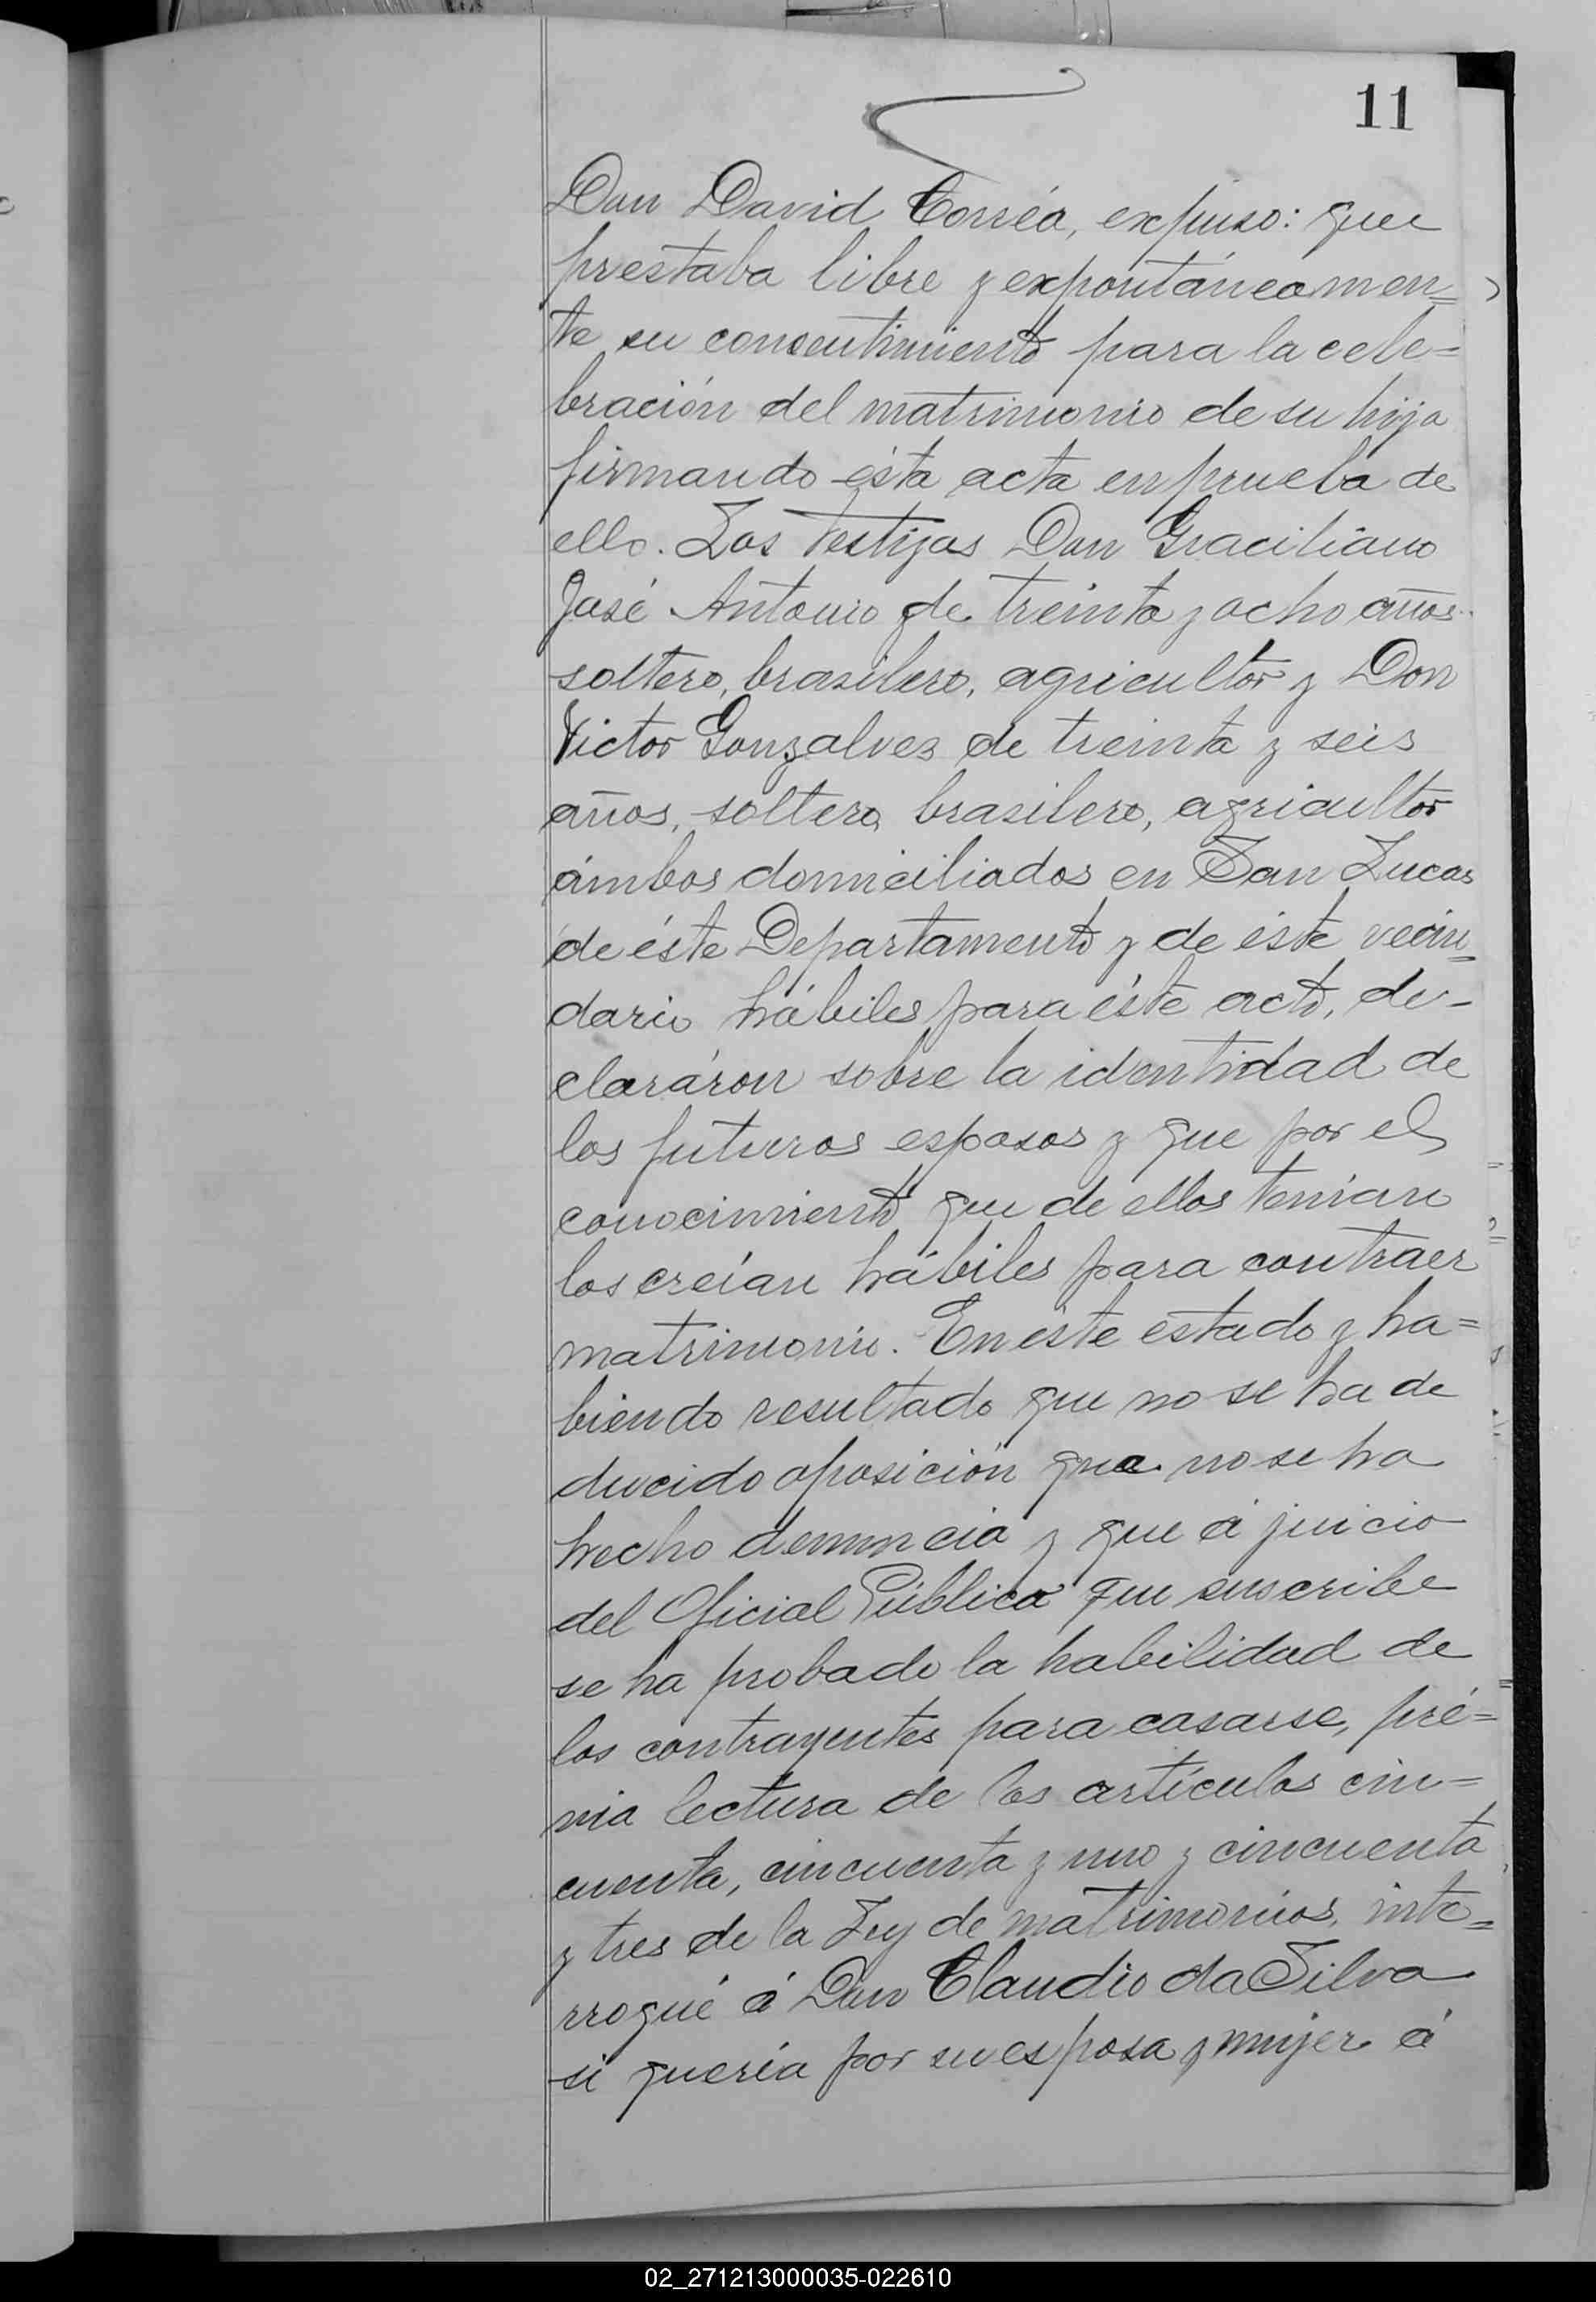 11
Don David Corréa, expuso: que
prestaba libre y expontáneamen=
te su consentimiento para la cele=
bración del matrimonio de su hija
firmando ésta acta en prueba de
ello. Los testigos Don Graciliano
José Antonio de treinta y ocho años
soltero, brasilero, agricultor y Don
Victor Gonzalves de treinta y seis
años, soltero, brasilero, agricultor
ámbos domiciliados en San Lucas
de éste Departamento y de éste vecin=
dario hábiles para éste acto, de-
claráron sobre la identidad de
los futuros esposos y que por el
conocimiento que de ellos tenian
los creían hábiles para contraer
matrimonio. En éste estado y ha=
biendo resultado que no se ha de
ducido oposición que no se ha
hecho denuncia y que á juicio
del Oficial Público que suscribe
se ha probado la habilidad de
los contrayentes para casarse, pré=
via lectura de los artículos cin=
cuenta, cincuenta y uno y cincuenta
y tres de la Ley de matrimonios, inte=
rrogué á Don Claudio da Silva
si quería por su esposa y mujer á
02_271213000035-022610